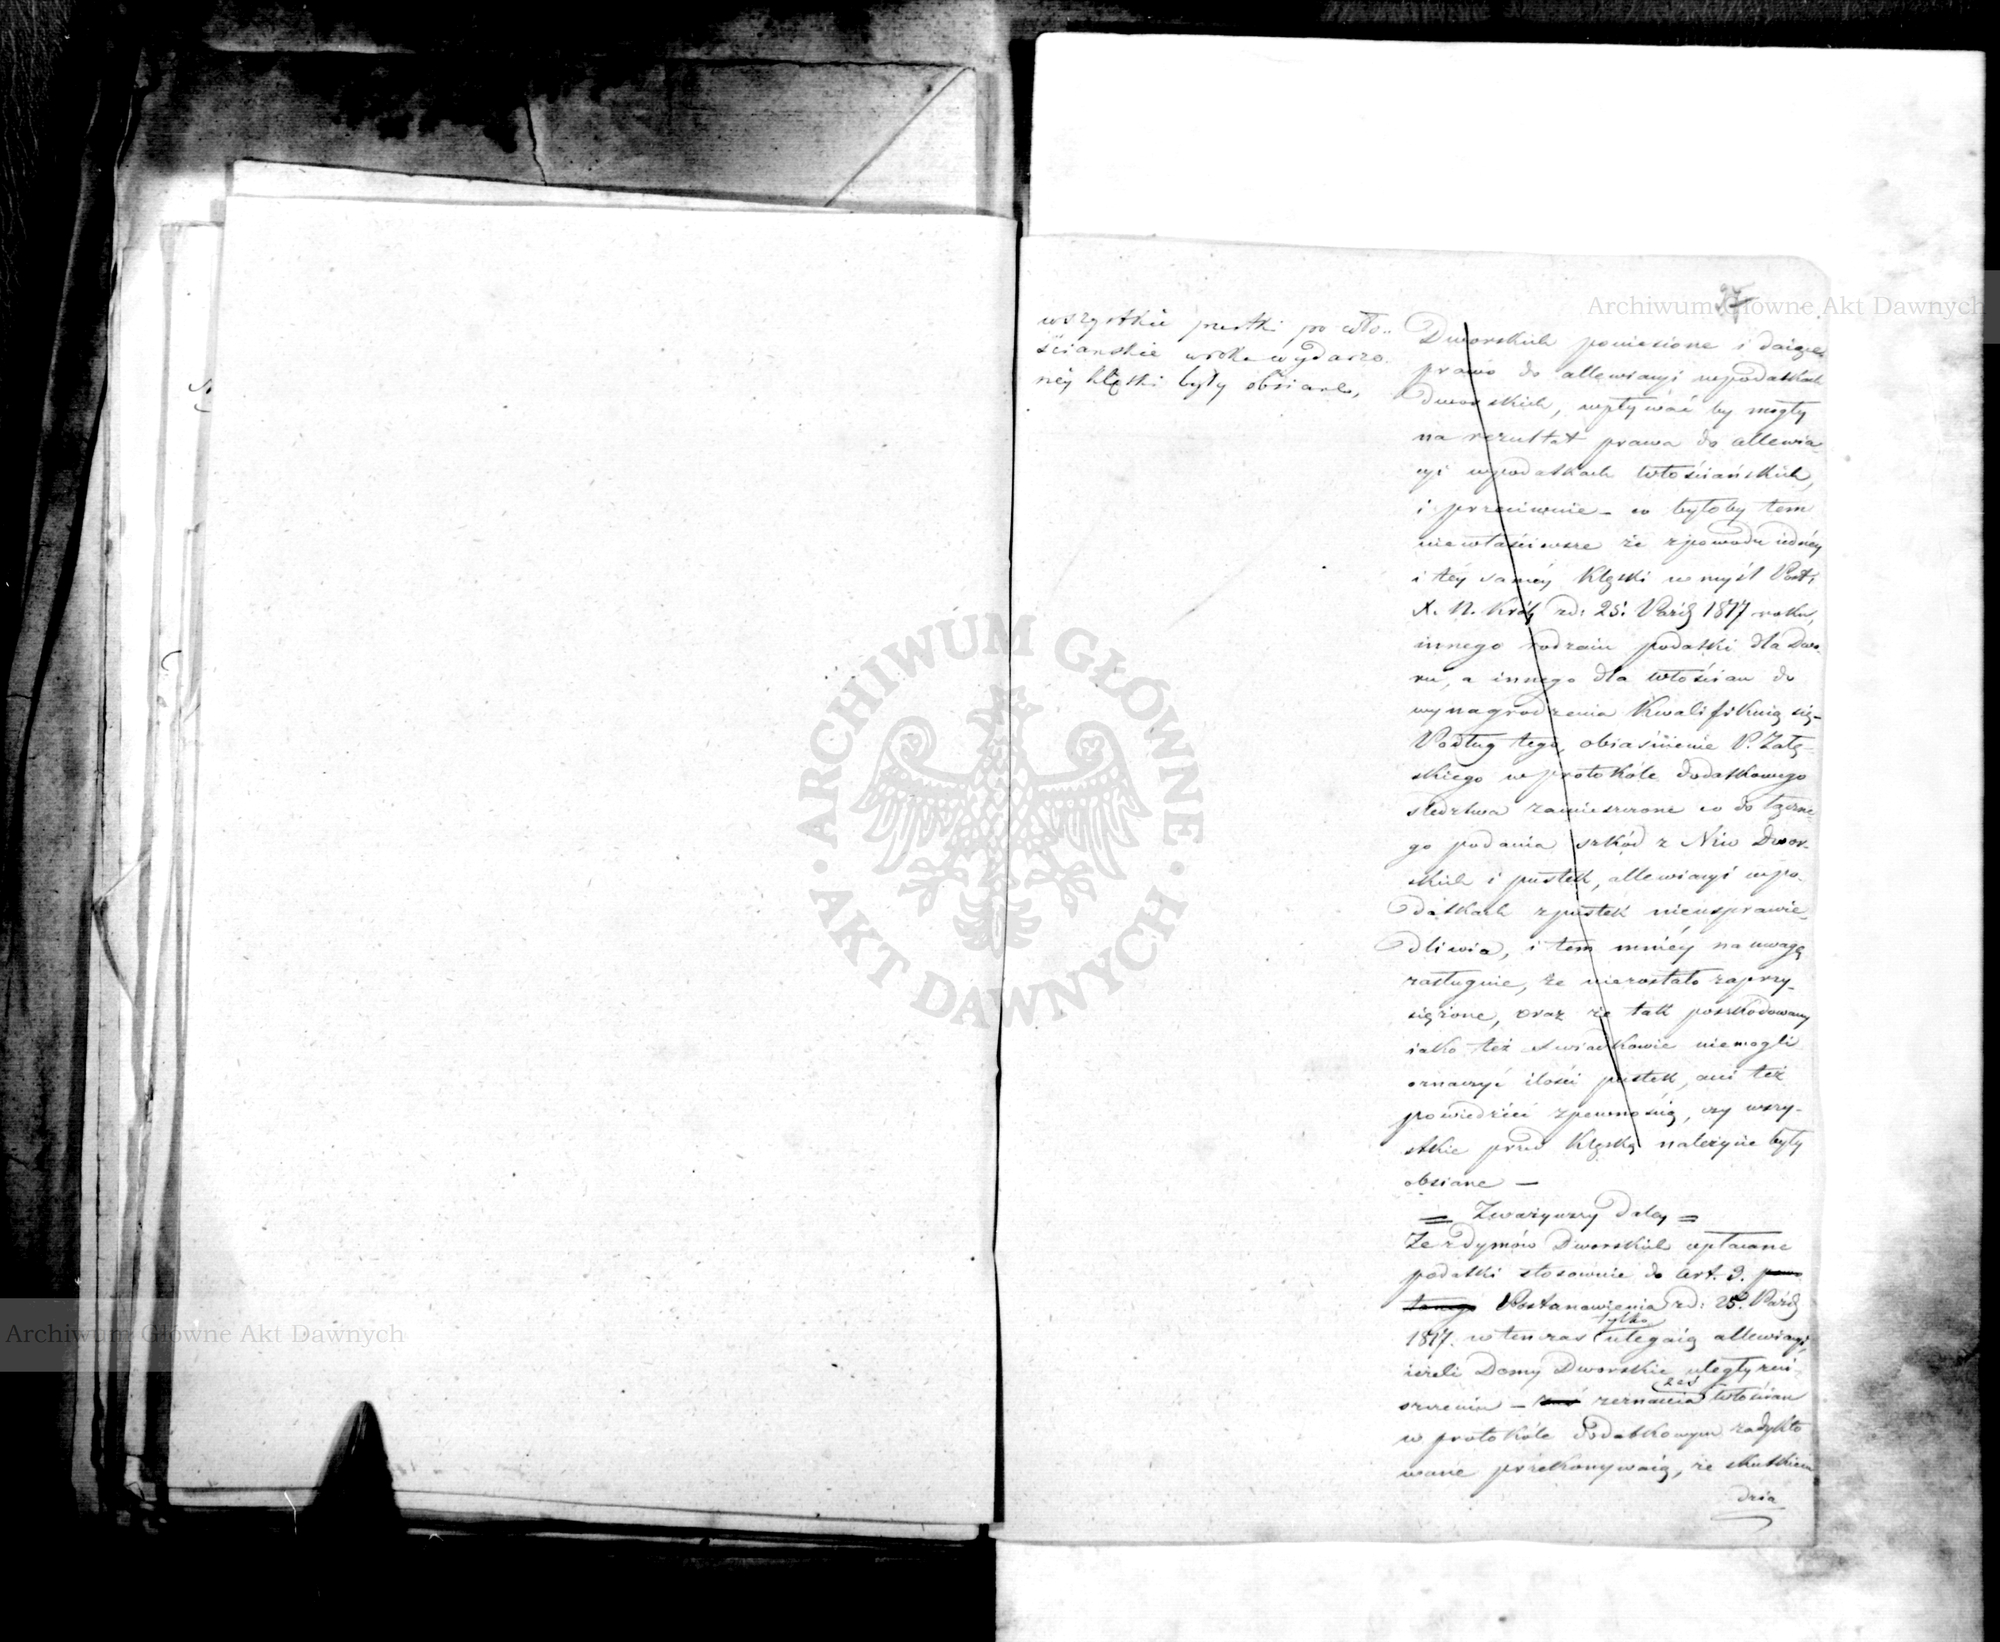 wszystkie pustki po wło-
ściańskie w roku wydarzo-
néy klęski były obsiane,
Dworskich poniesione i daiące
prawo do allewiacyi w podatkach
dworskich, wpływać by mogły
na rezultat prawa do allewia-
cyi w podatkach włościańskich,
i przeciwnie – co byłoby tem
niewłaściwsze że z powodu iednéy
i téy saméy klęski w myśl Post:
X. N. Król zd: 25. Paźdz 1817 roku,
innego rodzaiu podatki dla Dwo-
ru, a innego dla włościan do
wynagrodzenia kwalifikuią się –
Podług tego, obiaśnienie P. Załę-
skiego w protokóle dodatkowego
śledztwa zamieszczone co do łączne-
go podania szkód z Niw Dwor-
skich i pustek, allewiacyi w po-
datkach z pustek nieusprawie-
dliwia, i tem mniéy na uwagę
zasługuie, że niezostało zaprzy-
siężone, oraz że tak poszkodowany
iako też świadkowie niemogli
oznaczyć ilości pustek, ani też
powiedzieć z pewnością, czy wszy-
stkie przed klęską należycie były
obsiane –
= Zważywszy daléy =
Że z dymów Dworskich opłacane
podatki stosownie do art. 3.
Postanowienia zd: 25. Paźdz
1817. w tenczas tylko ulegaią allewiacyi,
ieżeli Domy Dworskie uległy zni-
szczeniu – zaś zeznania włościan
w protokóle dodatkowym zadykto
wane przekonywaią, że skutkiem
dzia
Archiwum Główne Akt Dawnych
Archiwum Główne Akt Dawnych
ARCHIWUM GŁÓWNE
AKT DAWNYCH